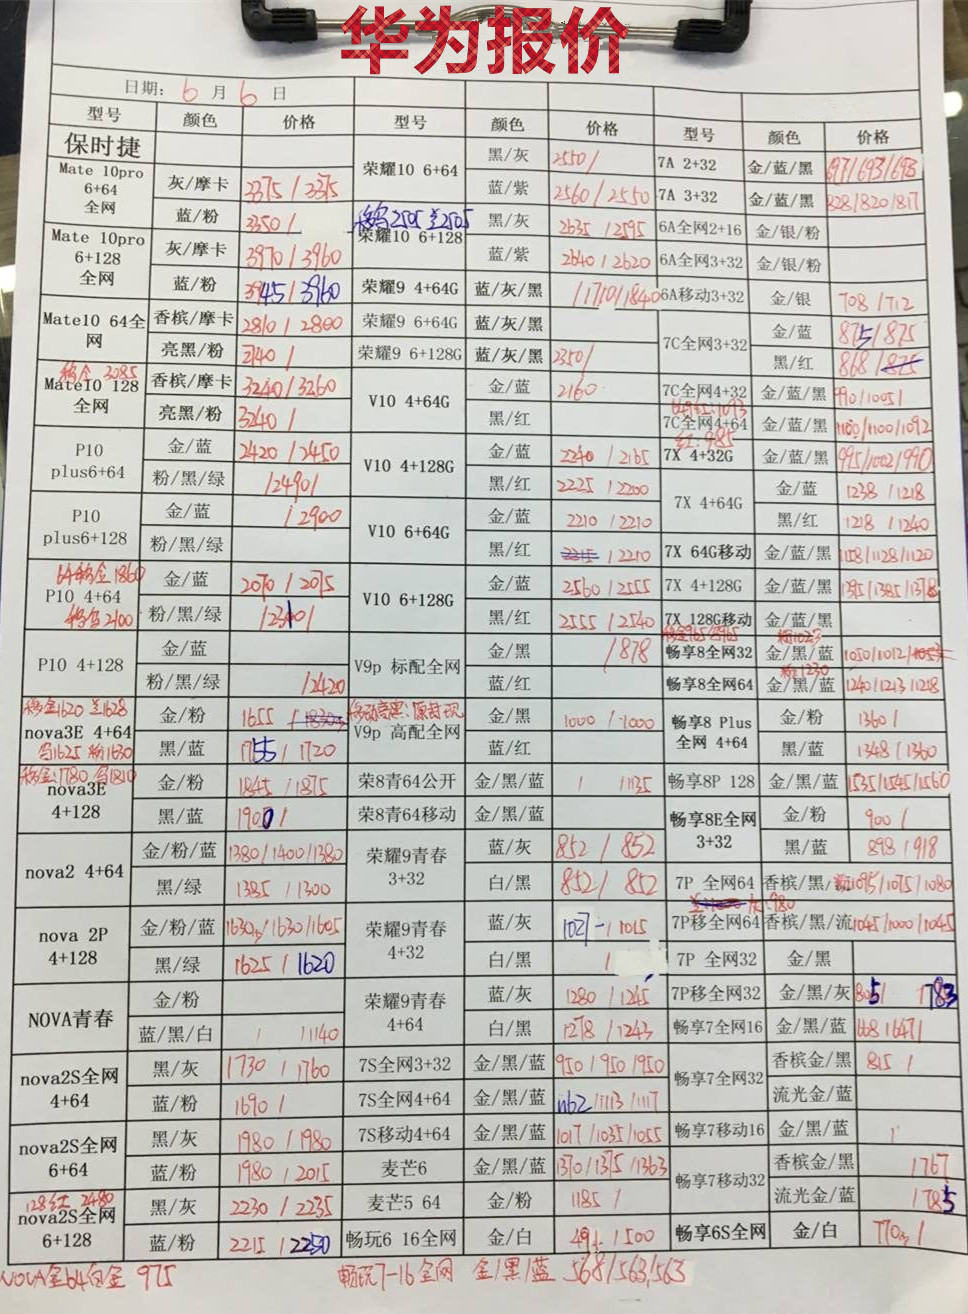 华为报价
日期: 6 月 6 日
型号 颜色 价格 型号 颜色 价格 型号 颜色 价格
保时捷
Mate 10pro 6+64 全网 灰/摩卡 2375 / 2375
蓝/粉 2350 /
Mate 10pro 6+128 全网 灰/摩卡 3970 / 3960
蓝/粉 3945 / 3960
Mate10 64全网 香槟/摩卡 2810 / 2800
亮黑/粉 2740 /
Mate10 128 全网 香槟/摩卡 3240 / 3260
亮黑/粉 3240 /
P10 plus6+64 金/蓝 2420 / 2450
粉/黑/绿 / 2490 /
P10 plus6+128 金/蓝 / 2900
粉/黑/绿
64移金1860
P10 4+64 金/蓝 2070 / 2075
粉/黑/绿
P10 4+128 金/蓝
粉/黑/绿 / 2420
移金1620 兰1628
nova3E 4+64 金/粉 1655 /
乌1625 粉1630
黑/蓝 1755 / 1720
移金:1780 乌1810
nova3E 4+128 金/粉 1845 / 1875
黑/蓝 1900 /
nova2 4+64 金/粉/蓝 1380 / 1400 / 1380
黑/绿 1385 / 1300
nova 2P 4+128 金/粉/蓝 1630 / 1630 / 1605
黑/绿 1625 / 1620
NOVA青春 金/粉
蓝/黑/白 / / 1140
nova2S全网 4+64 黑/灰 1730 / 1760
蓝/粉 1690 /
nova2S全网 6+64 黑/灰 1980 / 1980
蓝/粉 1980 / 2015
128红 2480
nova2S全网 6+128 黑/灰 2230 / 2235
蓝/粉 2215 / 2250
荣耀10 6+64 黑/灰 2550 /
蓝/紫 2560 / 2550
荣耀10 6+128 黑/灰 2635 / 2595
蓝/紫 2640 / 2620
荣耀9 4+64G 蓝/灰/黑 / 1710 / 1840
荣耀9 6+64G 蓝/灰/黑
荣耀9 6+128G 蓝/灰/黑 2350 /
V10 4+64G 金/蓝 2160
黑/红
V10 4+128G 金/蓝 2240 / 2165
黑/红 2225 / 2200
V10 6+64G 金/蓝 2210 / 2210
黑/红 2215 / 2210
V10 6+128G 金/蓝 2560 / 2555
黑/红 2555 / 2540
V9p 标配全网 金/黑 / 1878
蓝/红
V9p 高配全网 金/黑 1000 / 1000
蓝/红
荣8青64公开 金/黑/蓝 / / 1135
荣8青64移动 金/黑/蓝
荣耀9青春 3+32 蓝/灰 852 / 852
白/黑 852 / 852
荣耀9青春 4+32 蓝/灰 1027 - / 1015
白/黑 /
荣耀9青春 4+64 蓝/灰 1280 / 1245
白/黑 1278 / 1243
7S全网3+32 金/黑/蓝 950 / 950 / 950
7S全网4+64 金/黑/蓝 1162 / 1113 / 1117
7S移动4+64 金/黑/蓝 1017 / 1035 / 1055
麦芒6 金/黑/蓝 1370 / 1375 / 1363
麦芒5 64 金/粉 1185 /
畅玩6 16全网 金/白 / 500
7A 2+32 金/蓝/黑 697 / 693 / 693
7A 3+32 金/蓝/黑 828 / 820 / 817
6A全网2+16 金/银/粉
6A全网3+32 金/银/粉
6A移动3+32 金/银 708 / 712
7C全网3+32 金/蓝 875 / 875
黑/红 868 / 875
7C全网4+32 金/蓝/黑 990 / 1005 /
7C全网4+64 金/蓝/黑 1100 / 1100 / 1092
红:985
7X 4+32G 金/蓝/黑 995 / 1002 / 990
7X 4+64G 金/蓝 1238 / 1218
黑/红 1218 / 1240
7X 64G移动 金/蓝/黑 1158 / 1128 / 1120
7X 4+128G 金/蓝/黑 1395 / 1385 / 1378
7X 128G移动 金/蓝/黑
畅享8全网32 金/黑/蓝 1050 / 1012 /
粉:1230
畅享8全网64 金/黑/蓝 1240 / 1213 / 1218
畅享8 Plus 全网 4+64 金/粉 1360 /
黑/蓝 1348 / 1360
畅享8P 128 金/黑/蓝 1535 / 1545 / 1560
畅享8E全网 3+32 金/粉 900 /
黑/蓝 898 / 918
7P 全网64 香槟/黑/ 1095 / 1075 / 1080
7P移全网64 香槟/黑/流 1045 / 1000 / 1045
7P 全网32 金/黑
7P移全网32 金/黑/灰 805 / 783
畅享7全网16 金/黑/蓝 668 / 647 /
畅享7全网32 香槟金/黑 815 /
流光金/蓝
畅享7移动16 金/黑/蓝 /
畅享7移动32 香槟金/黑 / 767
流光金/蓝 / 785
畅享6S全网 金/白 770 /
NOVA全64白金 975 畅玩7-16全网 金/黑/蓝 568/563/563